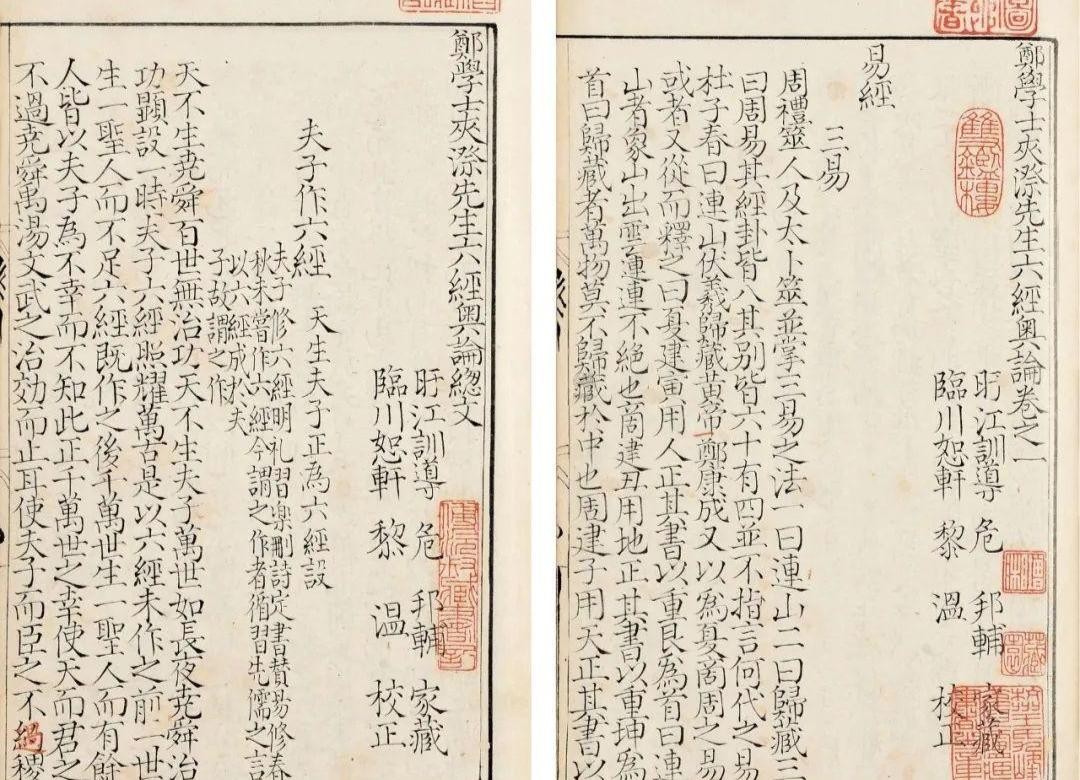 鄭學士夾漈先生六經奧論總文
旴江訓導 危 邦輔 家藏
臨川恕軒 黎 溫 校正
夫子作六經 天生夫子正為六經設
夫子修六經明礼習楽刪詩定書賛易修春
秋未嘗作六經今謂之作者循習先儒之言
以六經成於夫
子故謂之作
天不生尭舜百世無治功天不生夫子萬世如長夜尭舜治
功顯設一時夫子六經照耀萬古是以六經未作之前一世
生一聖人而不足六經既作之後千萬世生一聖人而有餘
人皆以夫子為不幸而不知此正千萬世之幸使天而君之
不過尭舜禹湯文武之治効而止耳使夫子而臣之不過稷
鄭學士夾漈先生六經奧論卷之一
雙鑑樓
旴江訓導 危 邦輔 家藏
臨川恕軒 黎 溫 校正
易經
三易
周禮筮人及太卜筮並掌三易之法一曰連山二曰歸藏三
曰周易其經卦皆八其別皆六十有四並不指言何代之易
杜子春曰連山伏羲歸藏黃帝鄭康成又以為夏商周之易
或者又從而釋之曰夏建寅用人正其書以重艮為首曰連
山者象山出雲連連不絕也商建丑用地正其書以重坤為
首曰歸藏者萬物莫不歸藏於中也周建子用天正其書以